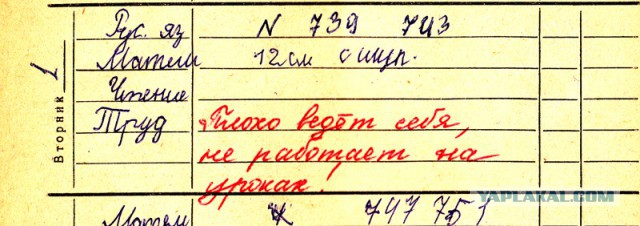 Вторник 1
Рус. яз N 739 743
Матем 12 см
Чтение
Труд Плохо ведёт себя,
не работает на
уроках!
Матем 747 751
YAPLAKAL.COM